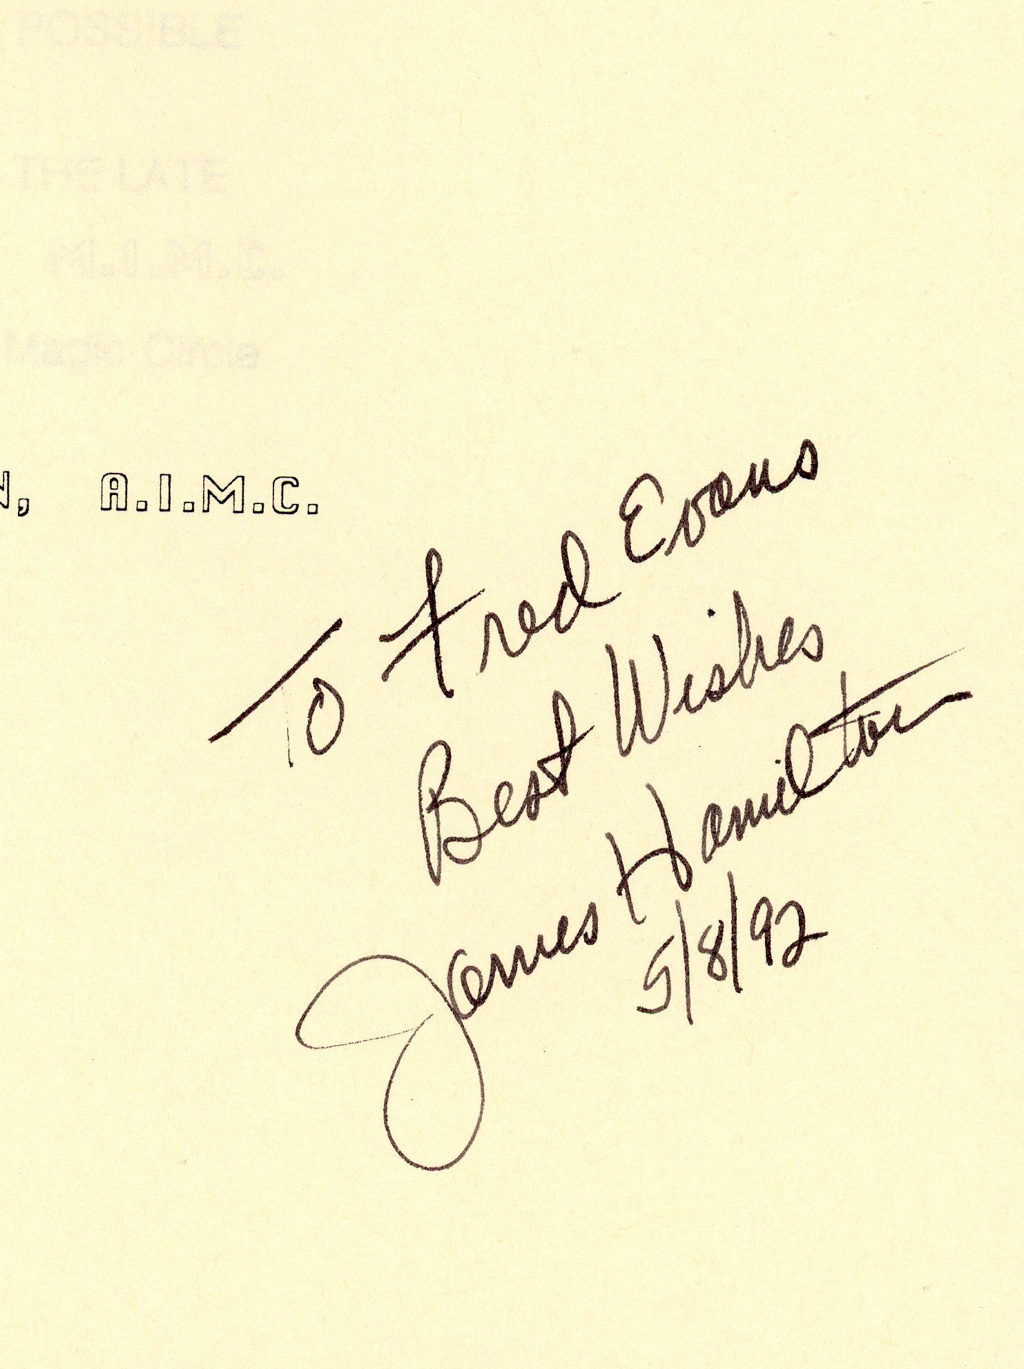 POSSIBLE
THE LATE
M.I.M.C.
Magic Circle
N, A.I.M.C.
To Fred Evans
Best Wishes
James Hamilton
5/8/92